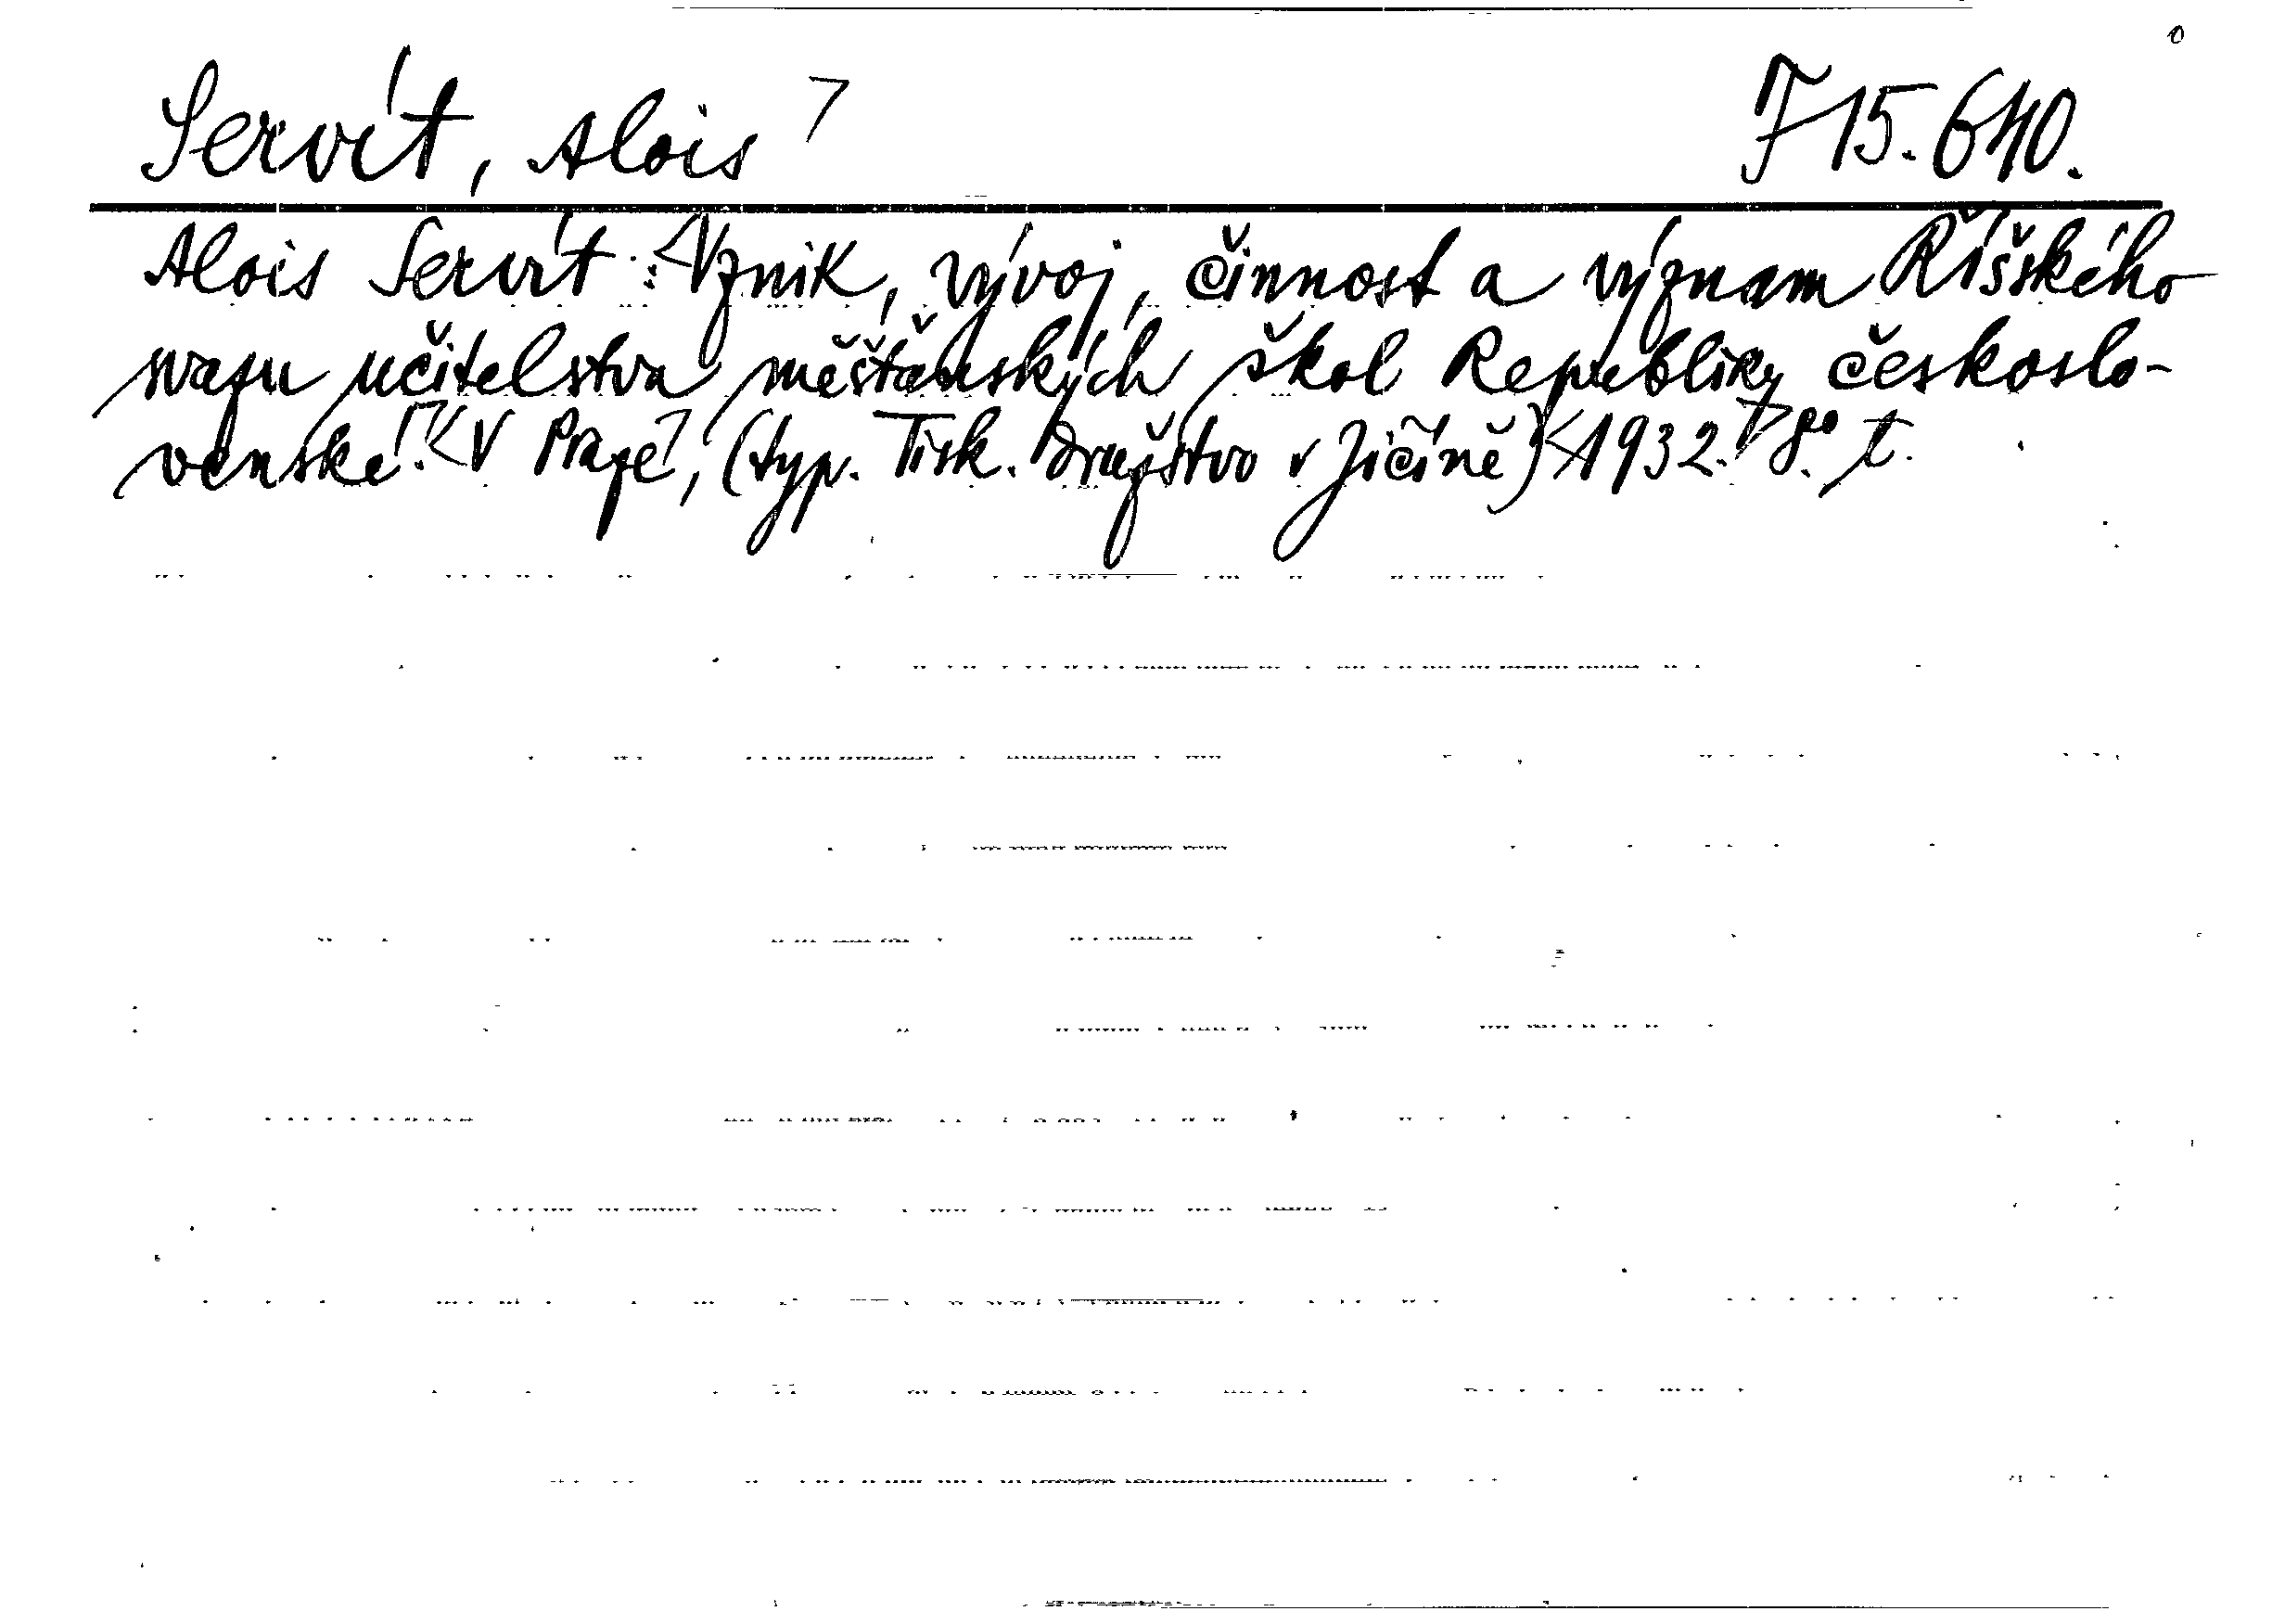 Servít, Alois 7 F 15.640.
Alois Servít: <Vznik, vývoj, činnost a význam Říšského
svazu učitelstva měšťanských škol Republiky českoslo-
venské.> <V Praze>, (typ. Tisk. družstvo v Jičíně) <1932.> 8°. t.